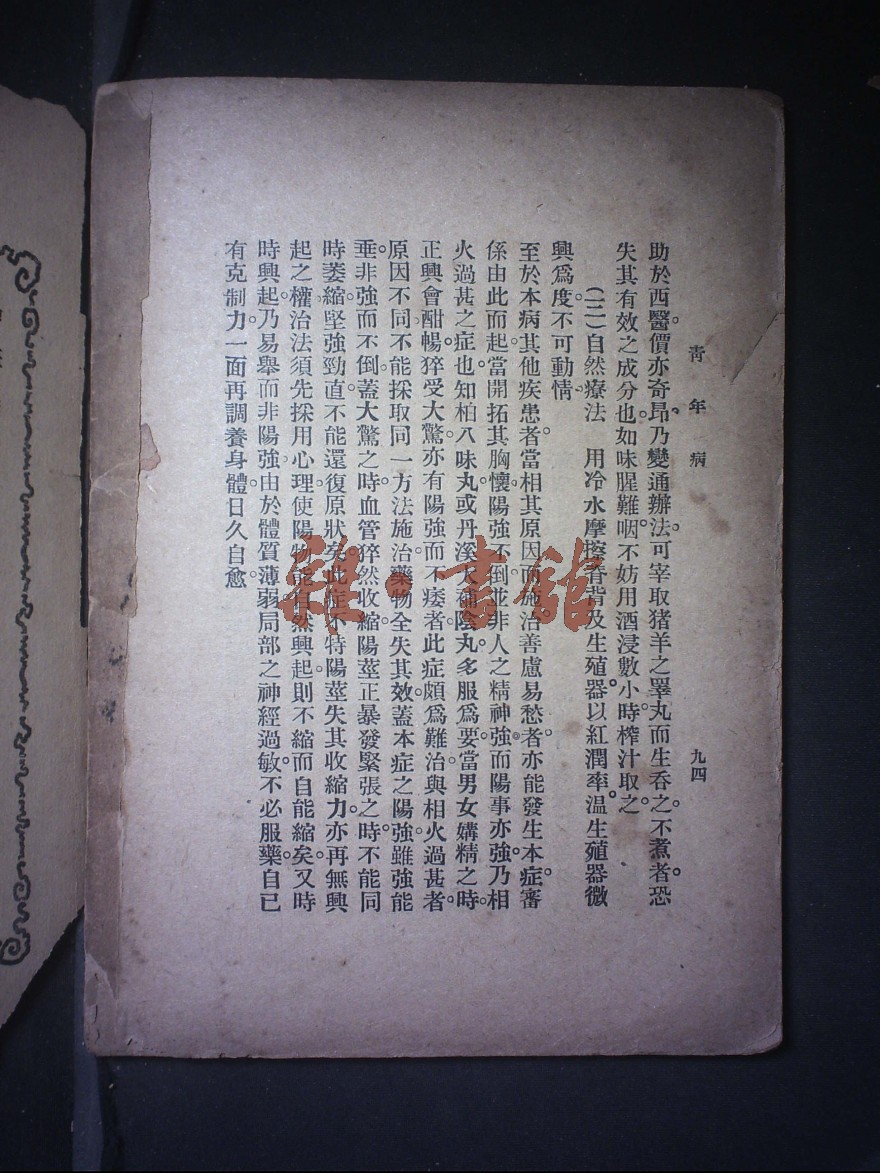 青年病
九四
助於西醫。價亦奇昂。乃變通辦法。可宰取猪羊之睪丸而生吞之。不煮者。恐
失其有效之成分也。如味腥難咽。不妨用酒浸數小時。榨汁取之。
(二)自然療法 用冷水摩擦脊背及生殖器。以紅潤率。温生殖器微
興爲度。不可動情。
至於本病其他疾患者。當相其原因而施治。善慮易愁者。亦能發生本症。審
係由此而起。當開拓其胸懷。陽強不倒。並非人之精神強而陽事亦強。乃相
火過甚之症也。知柏八味丸。或丹溪大補陰丸。多服爲要。當男女媾精之時。
正興會酣暢。猝受大驚。亦有陽強而不痿者。此症頗爲難治。與相火過甚者。
原因不同。不能採取同一方法施治。藥物全失其效。蓋本症之陽強。雖強能
垂。非強而不倒。蓋大驚之時。血管猝然收縮。陽莖正暴發緊張之時。不能同
時萎縮。堅強勁直。不能還復原狀矣。此症不特陽莖失其收縮力。亦再無興
起之權。治法須先採用心理。使陽物能自然興起。則不縮而自能縮矣。又時
時興起。乃易舉而非陽強。由於體質薄弱。局部之神經過敏。不必服藥。自已
有克制力。一面再調養身體。日久自愈。
雜·書館